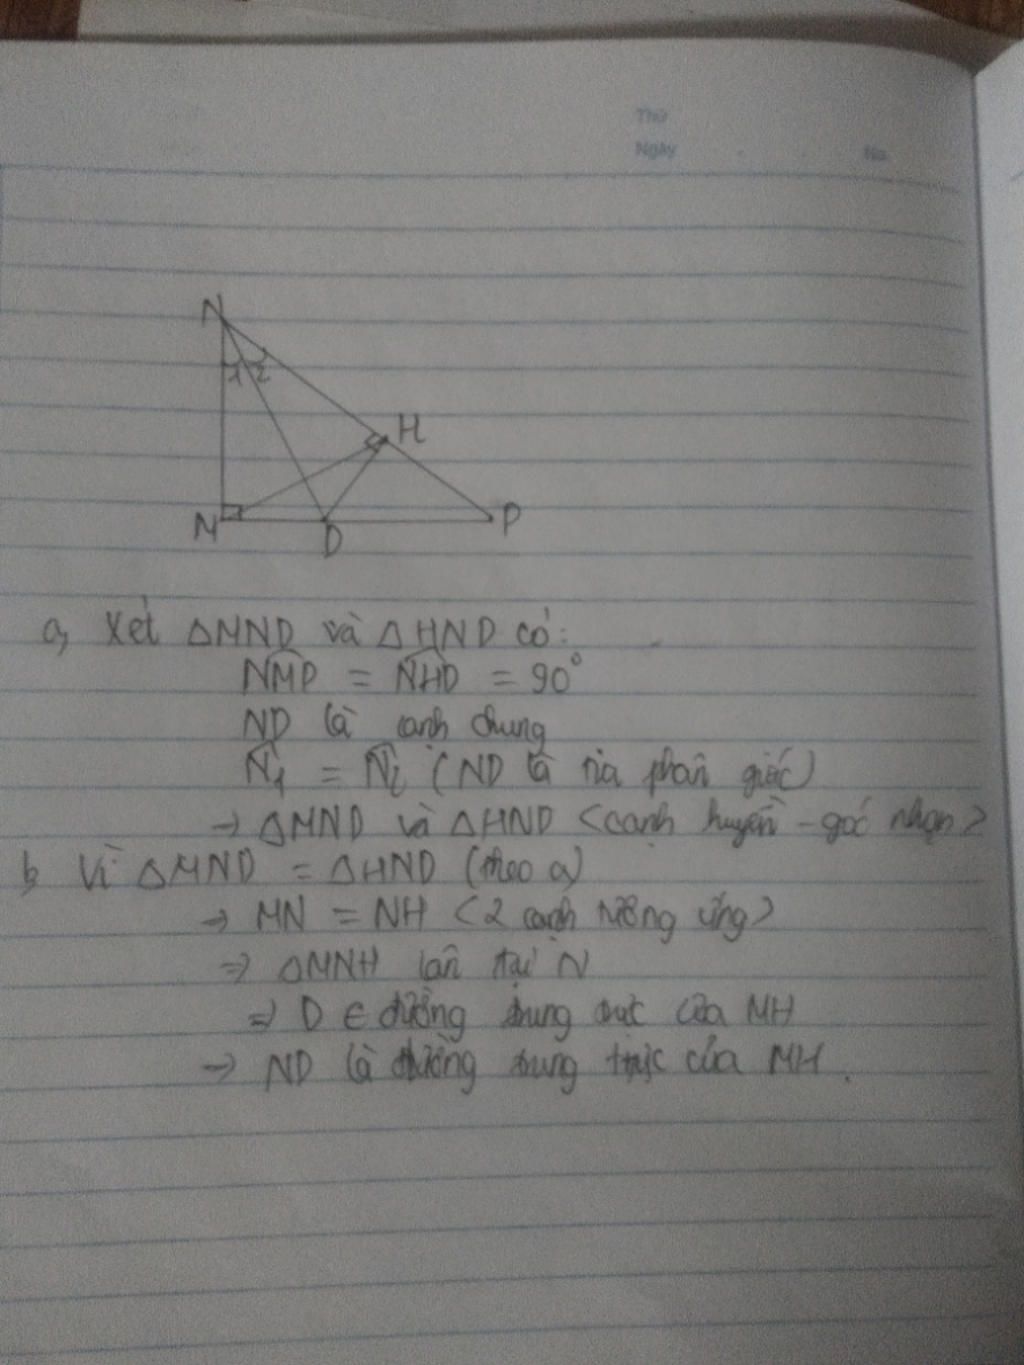 Thứ
Ngày
No.
N
1 2
H
M
D
P
a, Xét △MND và △HND có:
NMD = NHD = 90°
ND là cạnh chung
N1 = N2 (ND là tia phân giác)
→ △MND và △HND (cạnh huyền - góc nhọn)
b, Vì △MND = △HND (theo a)
→ MN = NH (2 cạnh tương ứng)
⇒ △MNH cân tại N
⇒ D ∈ đường trung trực của MH
→ ND là đường trung trực của MH.